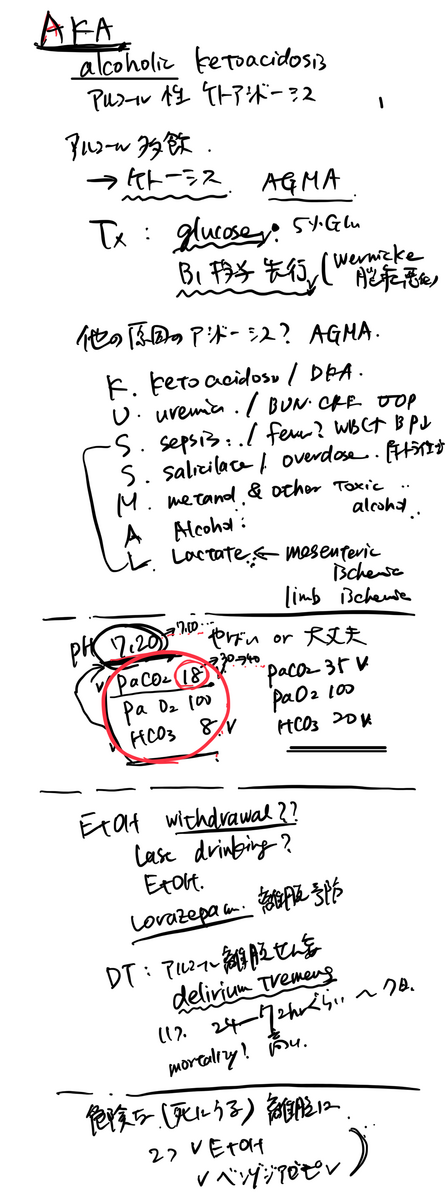 AKA
alcoholic ketoacidosis
アルコール性 ケトアシドーシス
アルコール多飲.
→ ケトーシス AGMA
Tx : glucose. 5%Glu
B1 投与 先行 (Wernicke
脳症悪化)
他の原因のアシドーシス? AGMA.
K. ketoacidosis / DKA.
U. uremia. / BUN. CRE
S. sepsis. / fever? WBC↑ BP↓
S. salicilate / overdose.
M. metanol & other toxic
alcohol..
A Alcohol:
L. Lactate ← mesenteric
ischemia
limb ischemia
pH 7.20 → 7.00... やばい or 大丈夫
PaCO2 18 → 30→40 PaCO2 35
PaO2 100 PaO2 100
HCO3 8 HCO3 20
EtOH withdrawal??
Last drinking?
EtOH.
Lorazepam. 離脱予防
DT : アルコール離脱せん妄
delirium tremens
24-72hrくらい ~ 7日.
mortality! 高い.
危険な (死にうる) 離脱は
2つ ✓ EtOH
✓ ベンゾジアゼピン